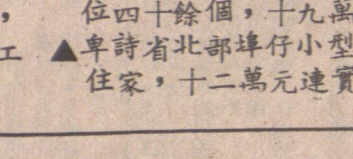 ，　位四十餘個，十九萬
工　▲卑詩省北部埠仔小型
住家，十二萬元連實